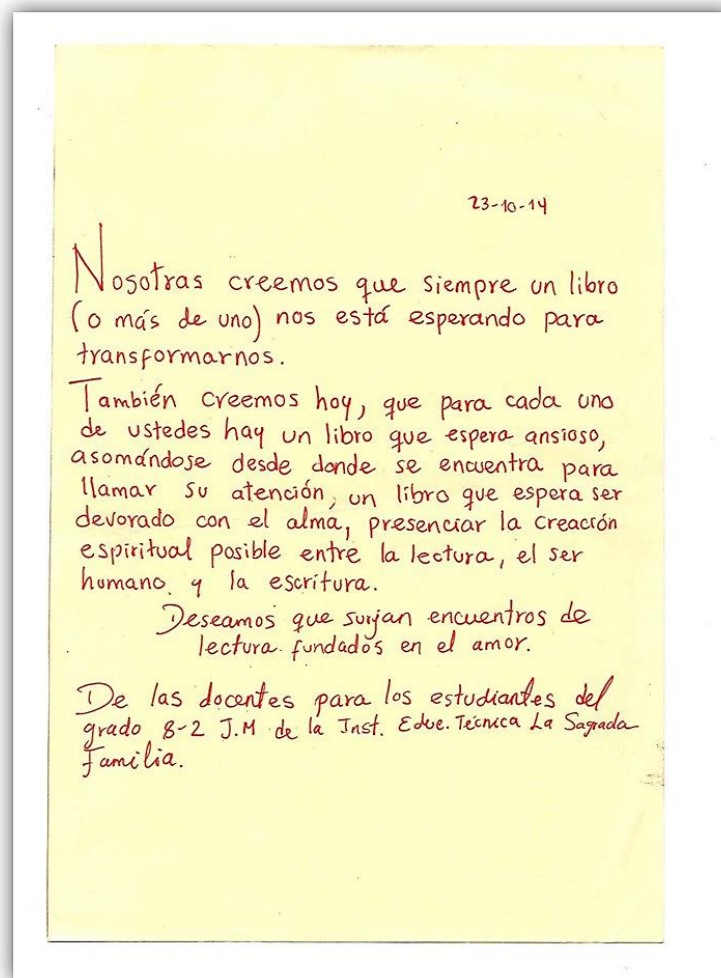 23-10-14
Nosotras creemos que siempre un libro
(o más de uno) nos está esperando para
transformarnos.
También creemos hoy, que para cada uno
de ustedes hay un libro que espera ansioso,
asomándose desde donde se encuentra para
llamar su atención, un libro que espera ser
devorado con el alma, presenciar la creación
espiritual posible entre la lectura, el ser
humano y la escritura.
Deseamos que surjan encuentros de
lectura fundados en el amor.
De las docentes para los estudiantes del
grado 8-2 J.M de la Inst. Educ. Técnica La Sagrada
Familia.